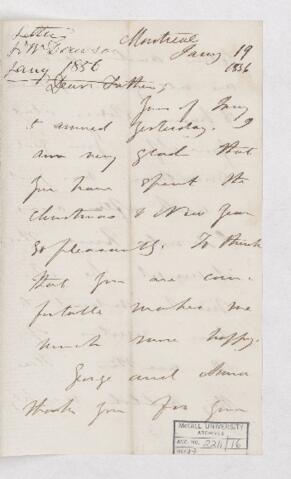 Letter
J. W. Dawson
Jany 1856
Montreal
Jany 19
1856
Dear Father,
Yours of Jany
5 arrived yesterday. I
am very glad that
you have spent the
Christmas & New Year
so pleasantly. To think
that you are com-
fortable makes me
much more happy.
George and Anna
thank you for your
McGILL UNIVERSITY
ARCHIVES
ACC. NO. 2211/16
REF.